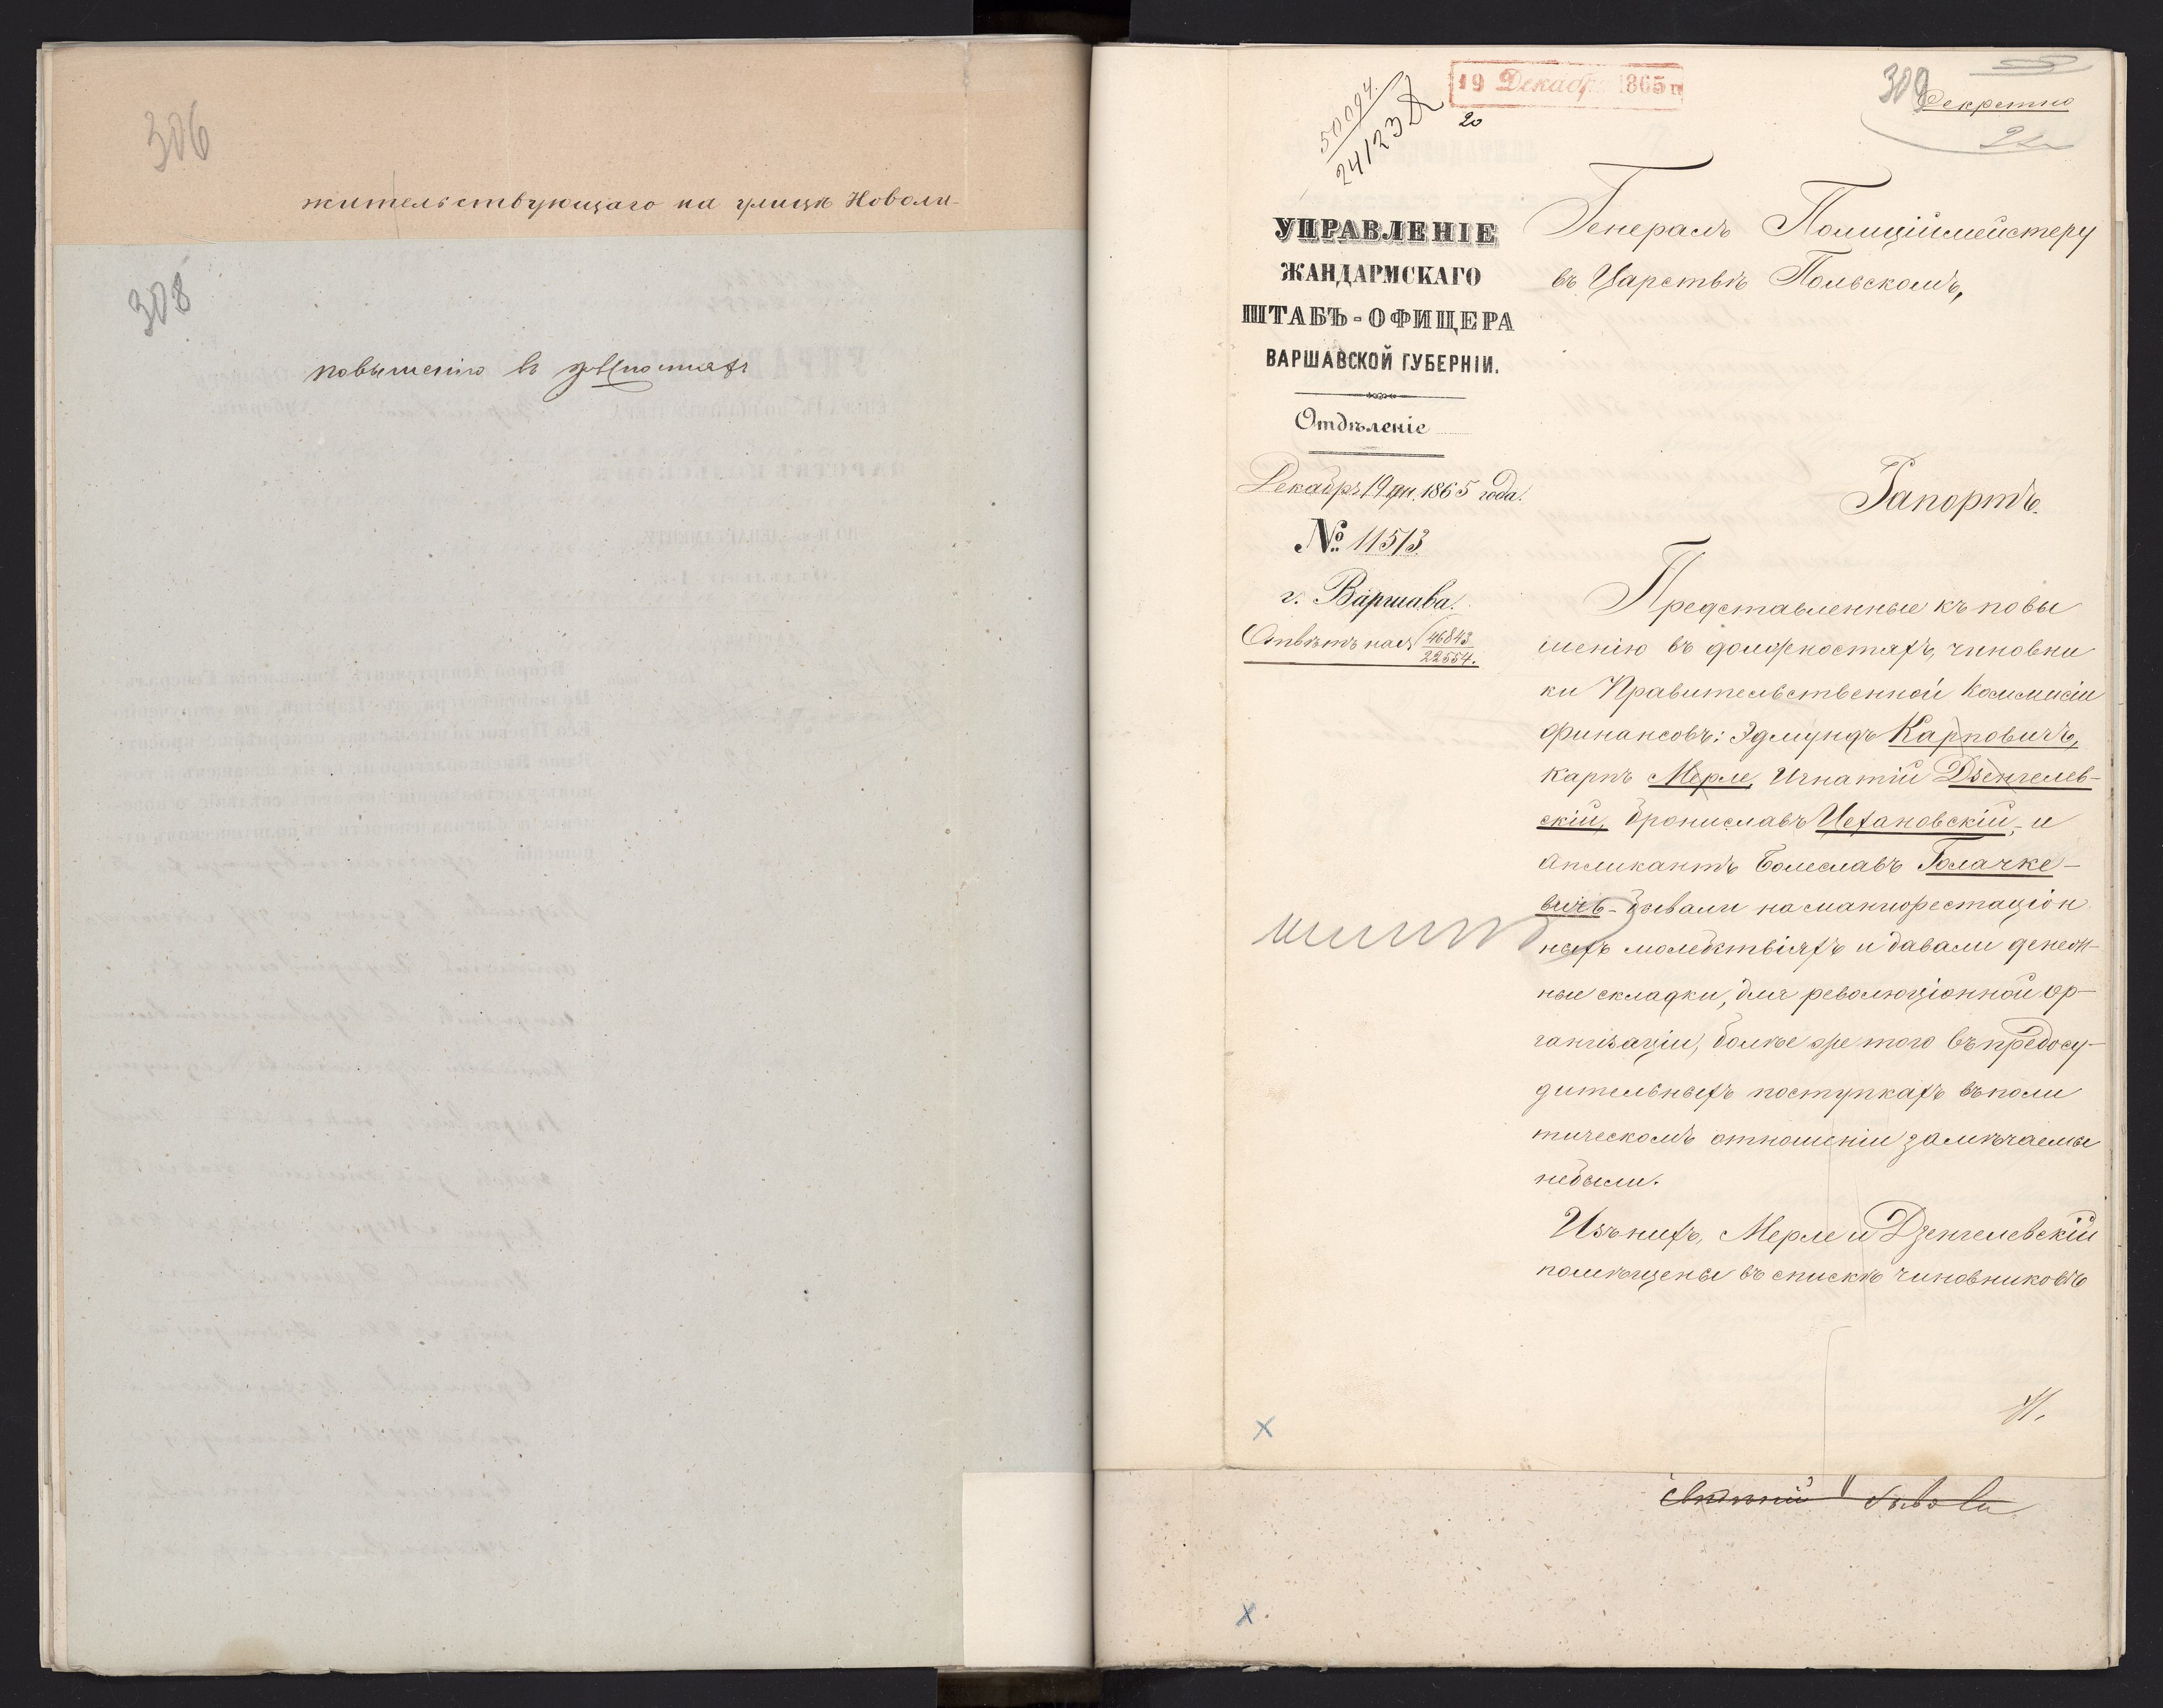 306
жительствующаго на улицѣ Новоли-
308
повышенію въ должностяхъ
50094
24123
19 Декабр 1865 г
20
309
Секретно
УПРАВЛЕНІЕ
ЖАНДАРМСКАГО
ШТАБЪ-ОФИЦЕРА
ВАРШАВСКОЙ ГУБЕРНІИ.
Отдѣленіе
Декабря 19 дн. 1865 года.
№ 11513.
г. Варшава.
Отвѣтъ на № 46843
22554.
Генералъ Полиціймейстеру
въ Царствѣ Польскомъ,
Рапортъ.
Представленные къ повы
шенію въ должностяхъ, чиновни
ки Правительственной Коммисіи
Финансовъ: Эдмундъ Карповичъ,
Карпъ Мерле, Игнатій Дзенгелев-
скій, Брониславъ Цехановскій, и
апликантъ Болеславъ Голачке-
вичъ - бывали на манифестаціон
ныхъ молебствіяхъ и давали денеж-
ные складки, для революціонной ор-
ганизаціи, болѣе же того въ предосу-
дительныхъ поступкахъ въ поли
тическомъ отношеніи замѣчаемы
небыли.
Изъ нихъ, Мерле и Дзенгелевскій
помѣщены въ спискѣ чиновниковъ
х
бывали
х.